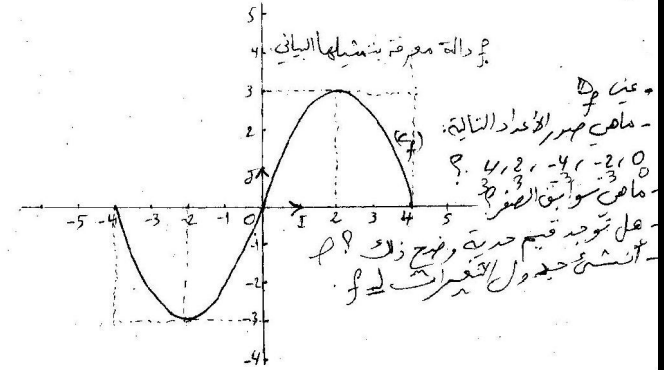 f دالة معرفة بتمثيلها البياني.
- عين Df
- ماهي صور الأعداد التالية:
0، -2، -4، 2، 4 ؟
- ماهي سوابق الصفر؟
- هل توجد قيم حدية وضح ذلك ؟
- أنشئ جدول التغيرات لـ f.
(Cf)
5
4
3
2
J
-5 -4 -3 -2 -1 0 I 2 3 4 5
-1
-2
-3
-4